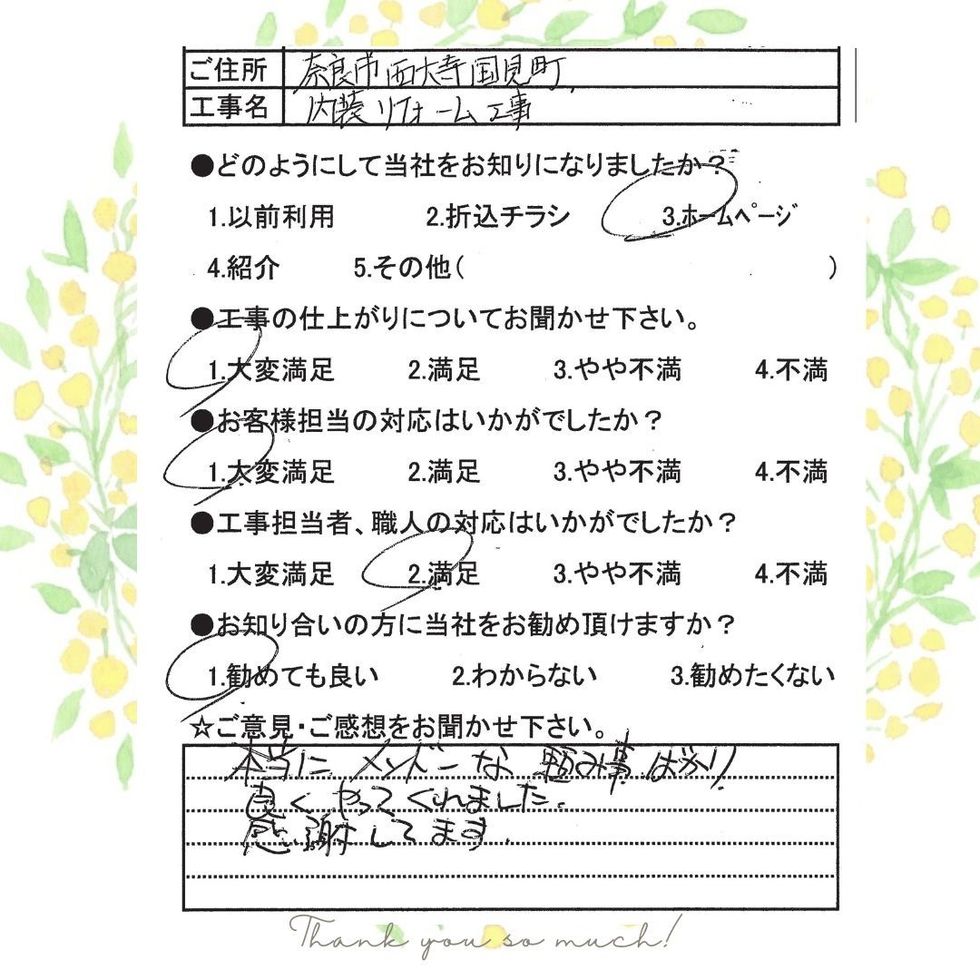 ご住所 奈良市西大寺国見町
工事名 内装リフォーム工事
●どのようにして当社をお知りになりましたか？
1.以前利用 2.折込チラシ 3.ﾎｰﾑﾍﾟｰｼﾞ
4.紹介 5.その他( )
●工事の仕上がりについてお聞かせ下さい。
1.大変満足 2.満足 3.やや不満 4.不満
●お客様担当の対応はいかがでしたか？
1.大変満足 2.満足 3.やや不満 4.不満
●工事担当者、職人の対応はいかがでしたか？
1.大変満足 2.満足 3.やや不満 4.不満
●お知り合いの方に当社をお勧め頂けますか？
1.勧めても良い 2.わからない 3.勧めたくない
☆ご意見・ご感想をお聞かせ下さい。
本当に メンドーな 頼み事ばかり
良くやってくれました。
感謝してます.
Thank you so much!